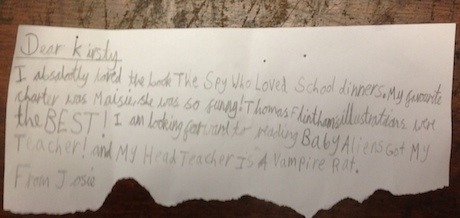 Dear Kirsty
I absolutly loved the book The Spy Who Loved School dinners. My favourite
charter was Maisie she was so funny! Thomas Flinthams illustrations were
the BEST! I am looking forward to reading Baby Aliens Got My
Teacher! and My Head Teacher Is A Vampire Rat.
From Josie